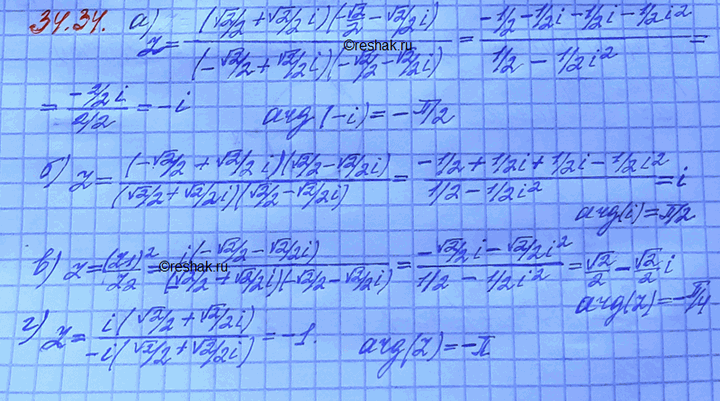 34.34. а) z = ((√2/2 + √2/2 i)(√2/2 − √2/2 i))/((−√2/2 + √2/2 i)(−√2/2 − √2/2 i)) = (−1/2 − 1/2 i − 1/2 i − 1/2 i²)/(1/2 − 1/2 i²) =
©reshak.ru
= (−2/2 i)/(2/2) = −i arg(−i) = −π/2
б) z = ((−√2/2 + √2/2 i)(√2/2 − √2/2 i))/((√2/2 + √2/2 i)(√2/2 − √2/2 i)) = (−1/2 + 1/2 i + 1/2 i − 1/2 i²)/(1/2 − 1/2 i²) = i
arg(i) = π/2
в) z = (z₁)²/z₂ = i(−√2/2 − √2/2 i)/((−√2/2 + √2/2 i)(−√2/2 − √2/2 i)) = (−√2/2 i − √2/2 i²)/(1/2 − 1/2 i²) = √2/2 − √2/2 i
©reshak.ru
arg(z) = −π/4
г) z = i(√2/2 + √2/2 i)/(−i(√2/2 + √2/2 i)) = −1. arg(z) = −π